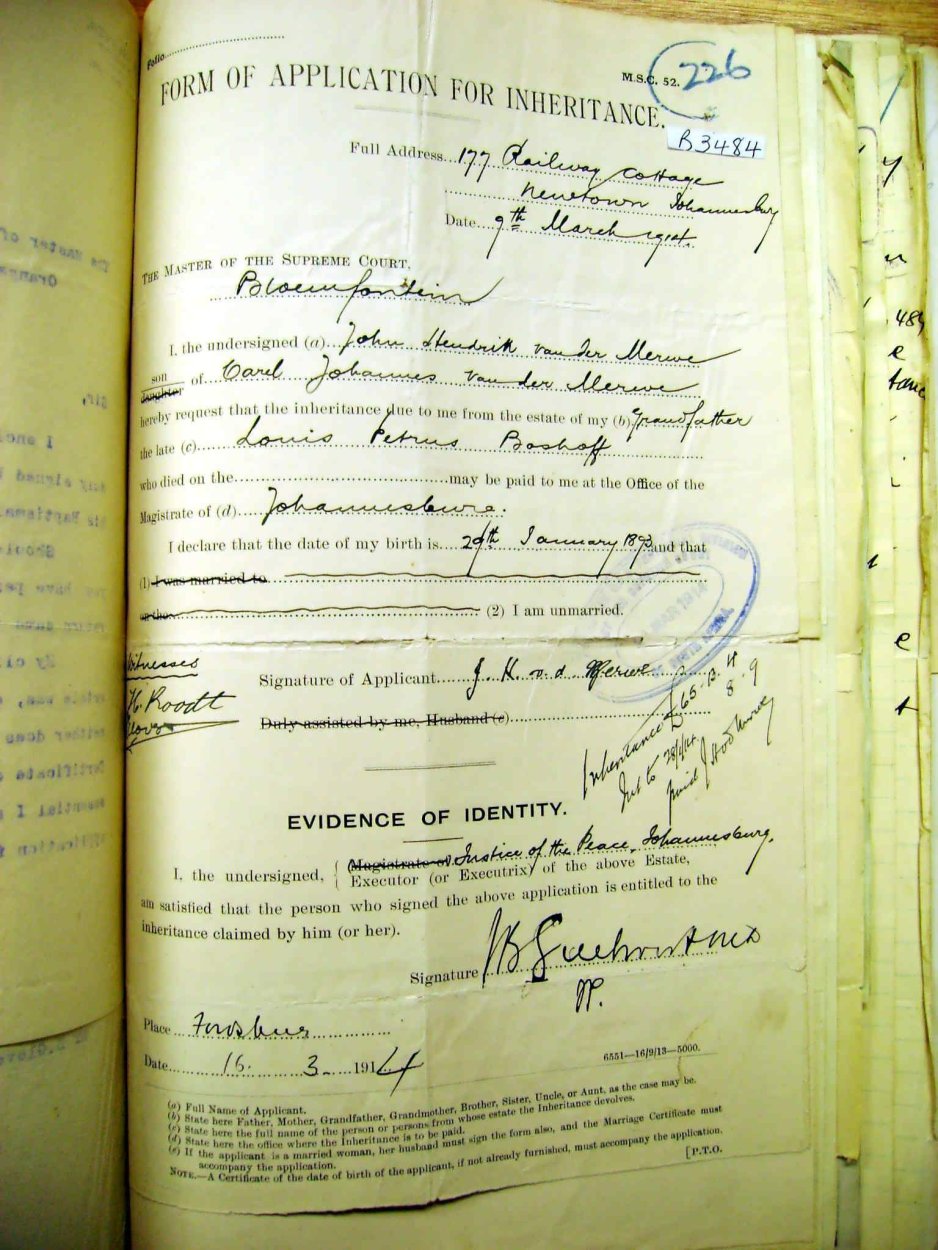 Folio
M.S.C. 52.
226
FORM OF APPLICATION FOR INHERITANCE.
B3484
Full Address...177 Railway Cottage
Newtown Johannesburg
Date...9th March 1914.
THE MASTER OF THE SUPREME COURT,
Bloemfontein
I, the undersigned (a) John Hendrik van der Merwe
son
daughter of Carel Johannes van der Merwe
hereby request that the inheritance due to me from the estate of my (b) Grandfather
the late (c) Louis Petrus Boshoff
who died on the may be paid to me at the Office of the
Magistrate of (d) Johannesburg.
I declare that the date of my birth is January 1893 and that
(1) I was married to
on the (2) I am unmarried.
Witnesses
Signature of Applicant J. H. v. d Merwe
H. Roodt
Duly assisted by me, Husband (e)
Inheritance £65. 13. 4
Int to 28/4/14. 8. 9
paid
EVIDENCE OF IDENTITY.
Magistrate of Justice of the Peace, Johannesburg.
I, the undersigned,
Executor (or Executrix) of the above Estate,
am satisfied that the person who signed the above application is entitled to the
inheritance claimed by him (or her).
Signature
JP.
Place
Date 16. 3. 1914
6551—16/9/13—5000.
(a) Full Name of Applicant.
(b) State here Father, Mother, Grandfather, Grandmother, Brother, Sister, Uncle, or Aunt, as the case may be.
(c) State here the full name of the person or persons from whose estate the Inheritance devolves.
(d) State here the office where the Inheritance is to be paid.
(e) If the applicant is a married woman, her husband must sign the form also, and the Marriage Certificate must
accompany the application.
NOTE.—A Certificate of the date of birth of the applicant, if not already furnished, must accompany the application.
[P.T.O.